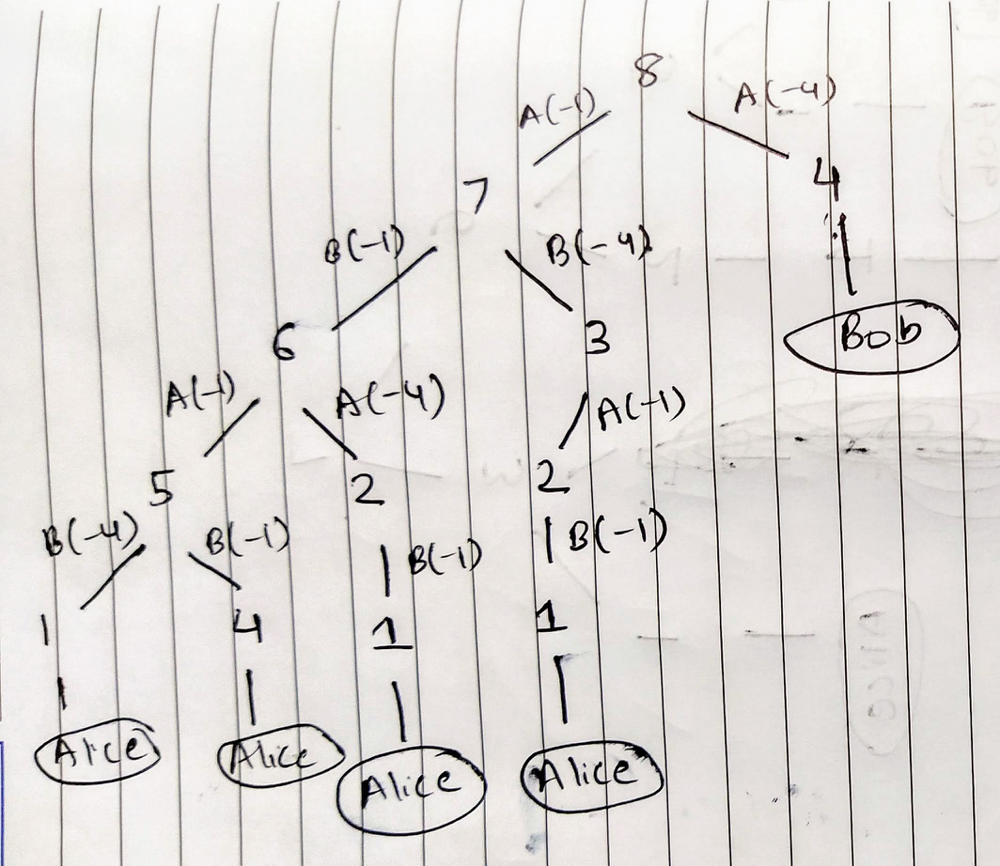 8
A(-1) A(-4)
7 4
B(-1) B(-4)
6 3 Bob
A(-1) A(-4) A(-1)
5 2 2
B(-4) B(-1) B(-1) B(-1)
1 4 1 1
Alice Alice Alice Alice